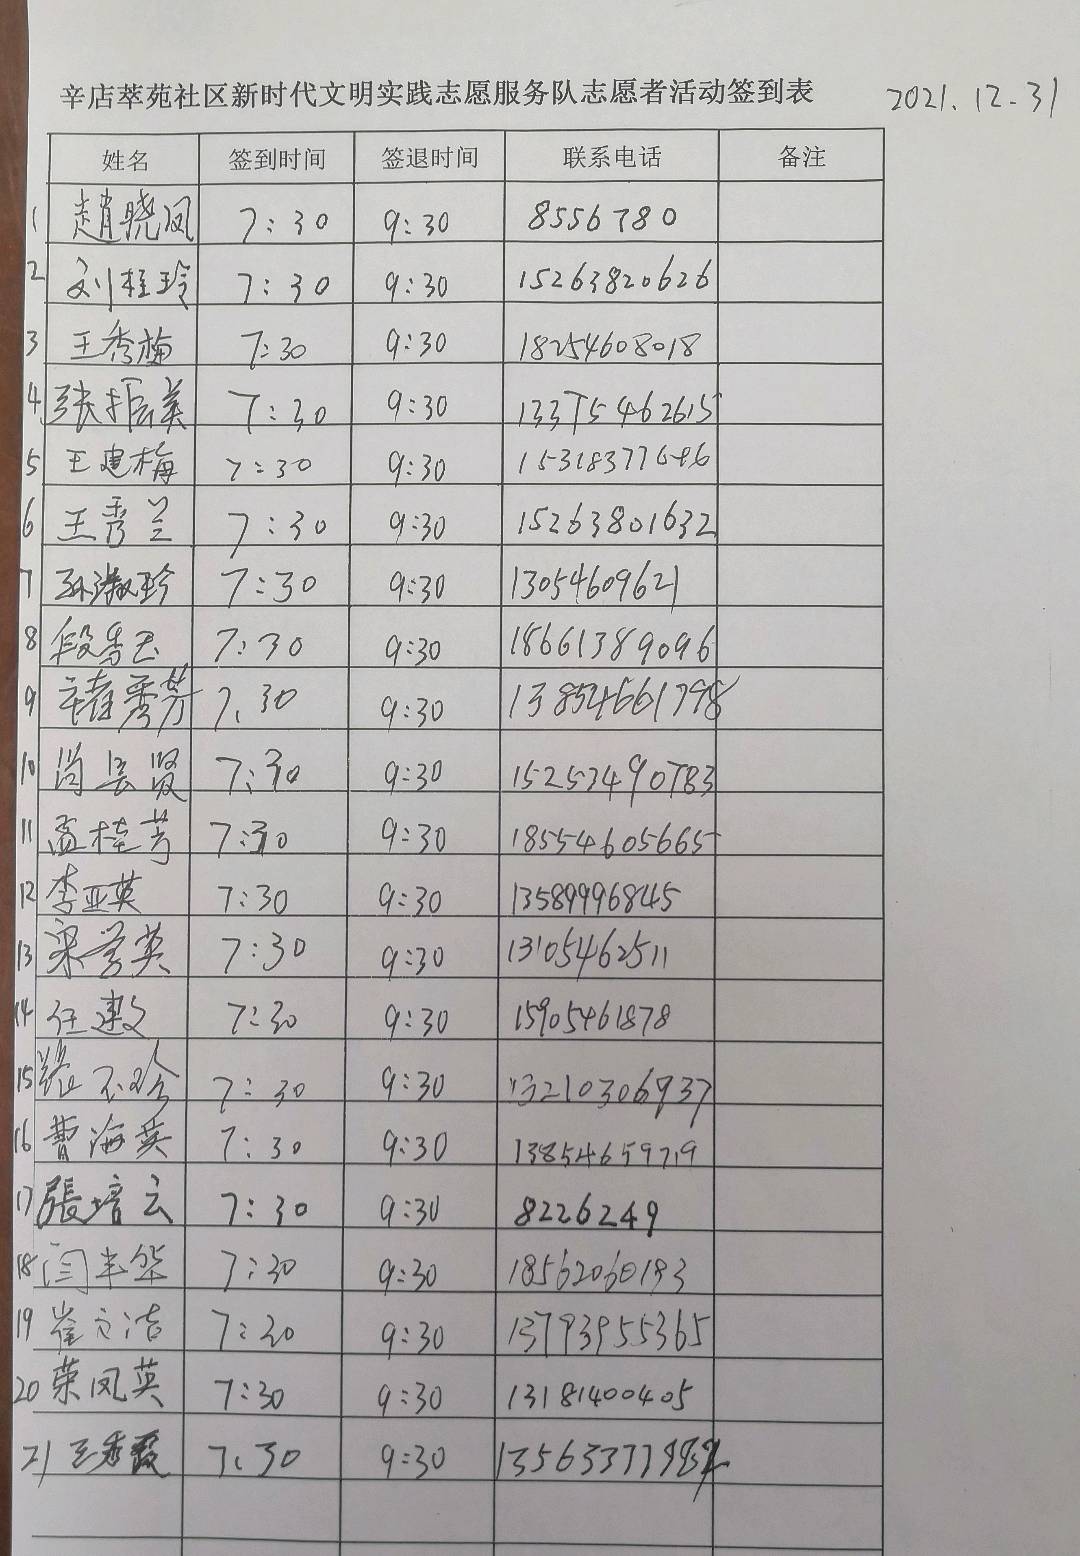 辛店萃苑社区新时代文明实践志愿服务队志愿者活动签到表 2021.12.31
姓名 签到时间 签退时间 联系电话 备注
1 赵晓凤 7:30 9:30 8556780
2 刘桂玲 7:30 9:30 15263820626
3 王秀梅 7:30 9:30 18254608018
4 张振美 7:30 9:30 13375462615
5 王建梅 7:30 9:30
6 王秀兰 7:30 9:30 15263801632
7 孙淑珍 7:30 9:30 13054609621
8 段秀玉 7:30 9:30 18661389096
9 韩秀芳 7.30 9:30 13854661798
10 尚长贤 7:30 9:30 15253490783
11 孟桂芳 7:30 9:30 18554605665
12 李亚英 7:30 9:30 13589996845
13 梁学英 7:30 9:30 13105462511
14 任建文 7:30 9:30 15905461878
15 7:30 9:30 13210306937
16 曹海英 7:30 9:30 13854659719
17 張培云 7:30 9:30 8226249
18 闫丰华 7:30 9:30 18562060193
19 崔文洁 7:30 9:30 13793955365
20 荣凤英 7:30 9:30 13181400405
21 王秀霞 7.30 9:30